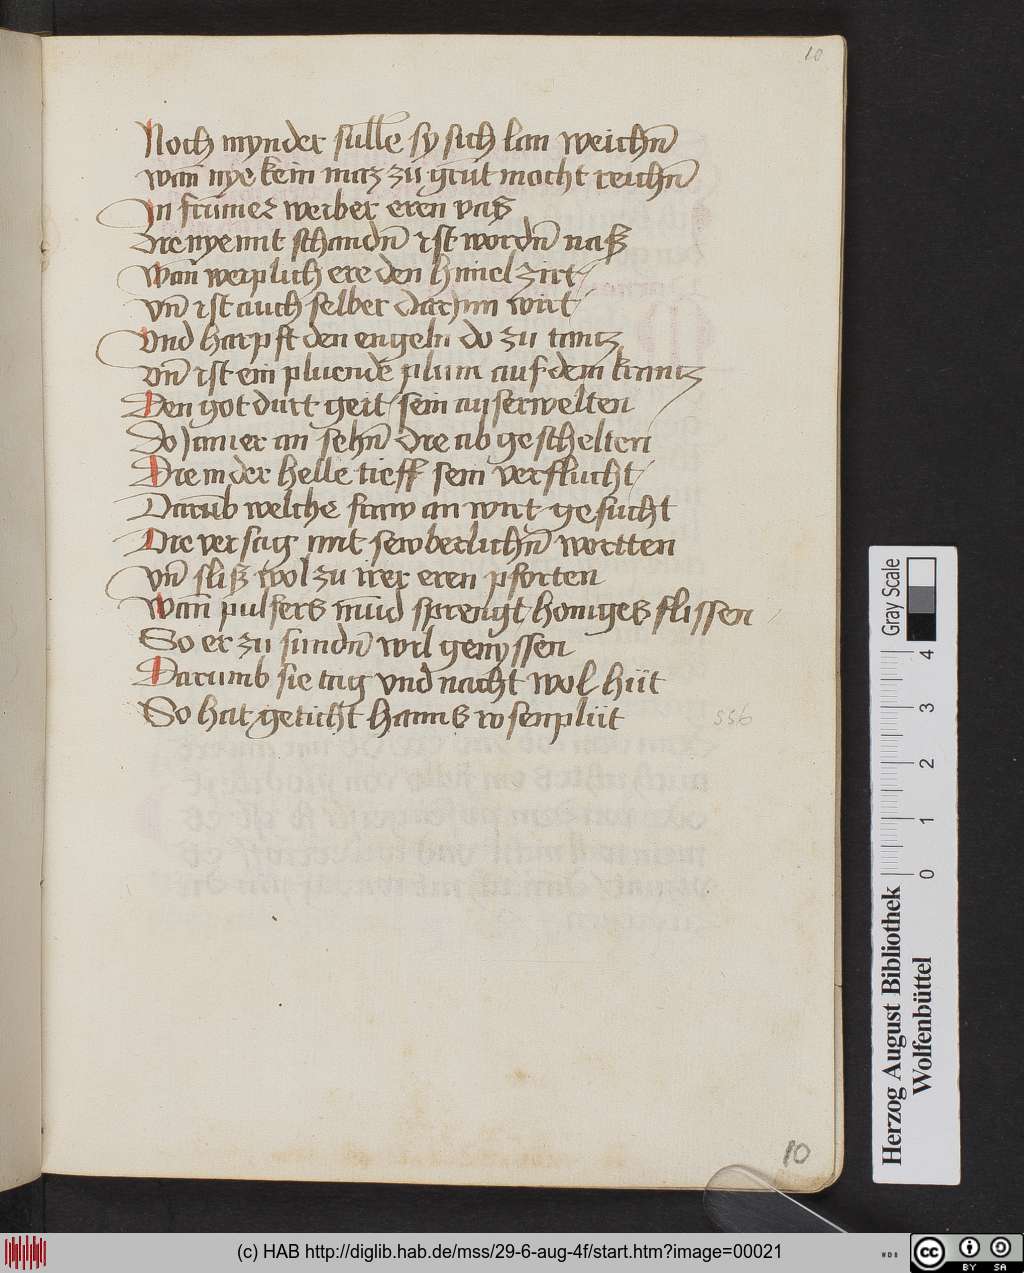 10
Noch mynder sülle sy sich lan weichñ
wañ nye kein maz zü grüt mocht reichñ
In frümez weiber eren vaß
Die nye mit schandñ ist wordñ naß
Wañ weiplich ere den himel zirt
vñ ist auch selber darJnn wirt
Vnd harpft den engeln do zu tantz
vñ ist ein pluende plum auf dem krantz
Den got durt geit sein auserwelten
Do Jmer an sehñ die ab geschelten
Die in der helle tieff sein verflucht
Darūb welche fraw an wirt gesucht
Die versag mit sewberlichñ wortten
vñ sliß wol zu irer eren pforten
Wañ pulfers mūd sprengt honiges flissen
So er zu sundñ wil genyssen
Darumb sie tag vnd nacht wol hüt
So hat geticht hanns rosenplüt
556
10
Gray Scale
4
3
2
1
0
Herzog August Bibliothek
Wolfenbüttel
(c) HAB http://diglib.hab.de/mss/29-6-aug-4f/start.htm?image=00021
WDB
cc BY SA